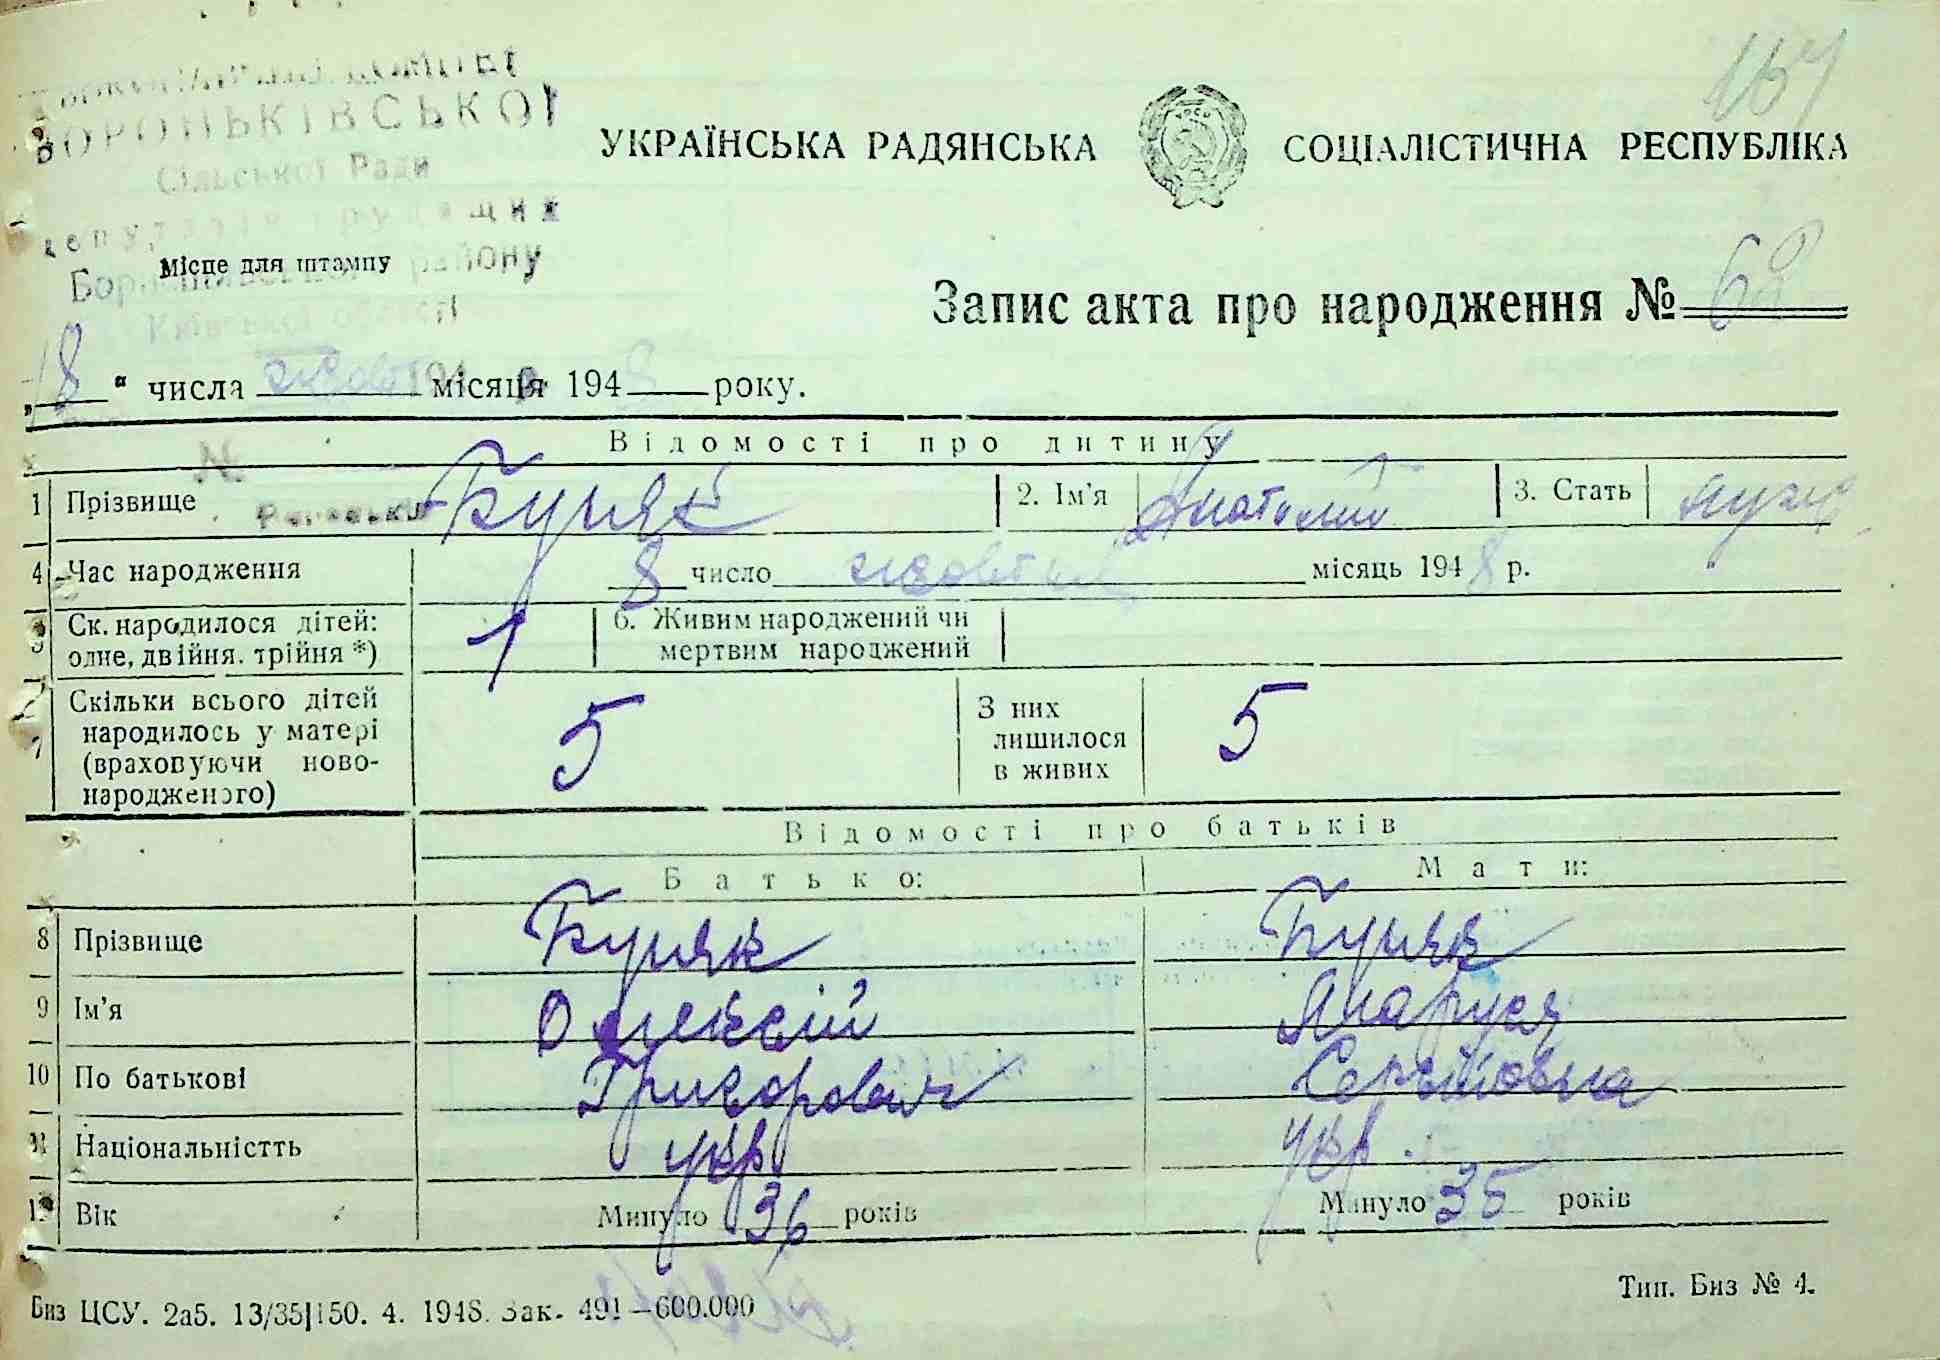 167
ВОРОНЬКІВСЬКОЇ
Сільської Ради
депутатів трудящих
Місце для штампу
Бориспільського району
Київської області
УКРАЇНСЬКА РАДЯНСЬКА СОЦІАЛІСТИЧНА РЕСПУБЛІКА
Запис акта про народження № 68
„18“ числа жовт місяця 1948 року.
Відомості про дитину
1 Прізвище Буняк 2. Ім'я Анатолій 3. Стать муж
4 Час народження 8 число жовтня місяць 1948 р.
5 Ск. народилося дітей: 1 6. Живим народжений чи
одне, двійня, трійня *) мертвим народжений
7 Скільки всього дітей 5 З них 5
народилось у матері лишилося
(враховуючи ново- в живих
народженого)
Відомості про батьків
Батько: Мати:
8 Прізвище Буняк Буняк
9 Ім'я Олексій Маруся
10 По батькові Григорович Сергіївна
11 Національністть укр укр.
12 Вік Минуло 36 років Минуло 35 років
Биз ЦСУ. 2а5. 13/35|150. 4. 1948. Зак. 491—600.000
Тип. Биз № 4.